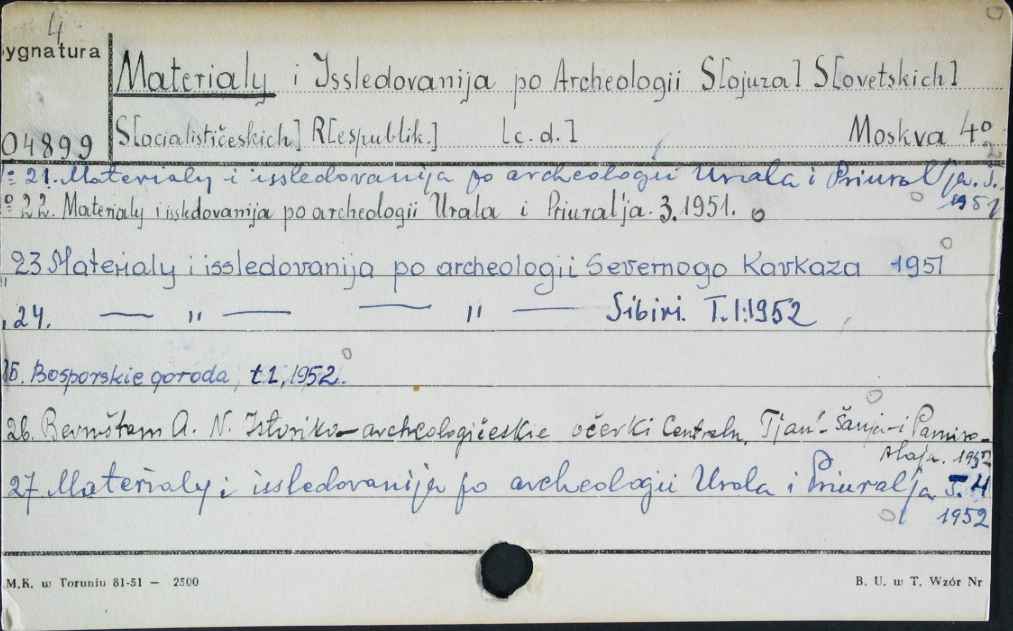 4
ygnatura
Materialy i Issledovanija po Archeologii S[ojuza] S[ovetskich]
04899 S[ocialističeskich] R[espublik.] [c.d.] Moskva 4º
21. Materialy i issledovanija po archeologii Urala i Priuralja.
1951
22. Materialy i issledovanija po archeologii Urala i Priural'ja. 3. 1951.
23 Materialy i issledovanija po archeologii Severnogo Kavkaza 1951
24. — " — — " — Sibiri. T.I:1952
Bosporskie goroda, t.1, 1952.
26. Bernštam A. N. Istoriko-archeologičeskie očerki Centraln. Tjan'-Šanja i Pamiro-
Alaja. 1952
27 Materialy i issledovanija po archeologii Urala i Priuralja T. 4
1952
M.K. w Toruniu 81-51 — 2500 B. U. w T. Wzór Nr